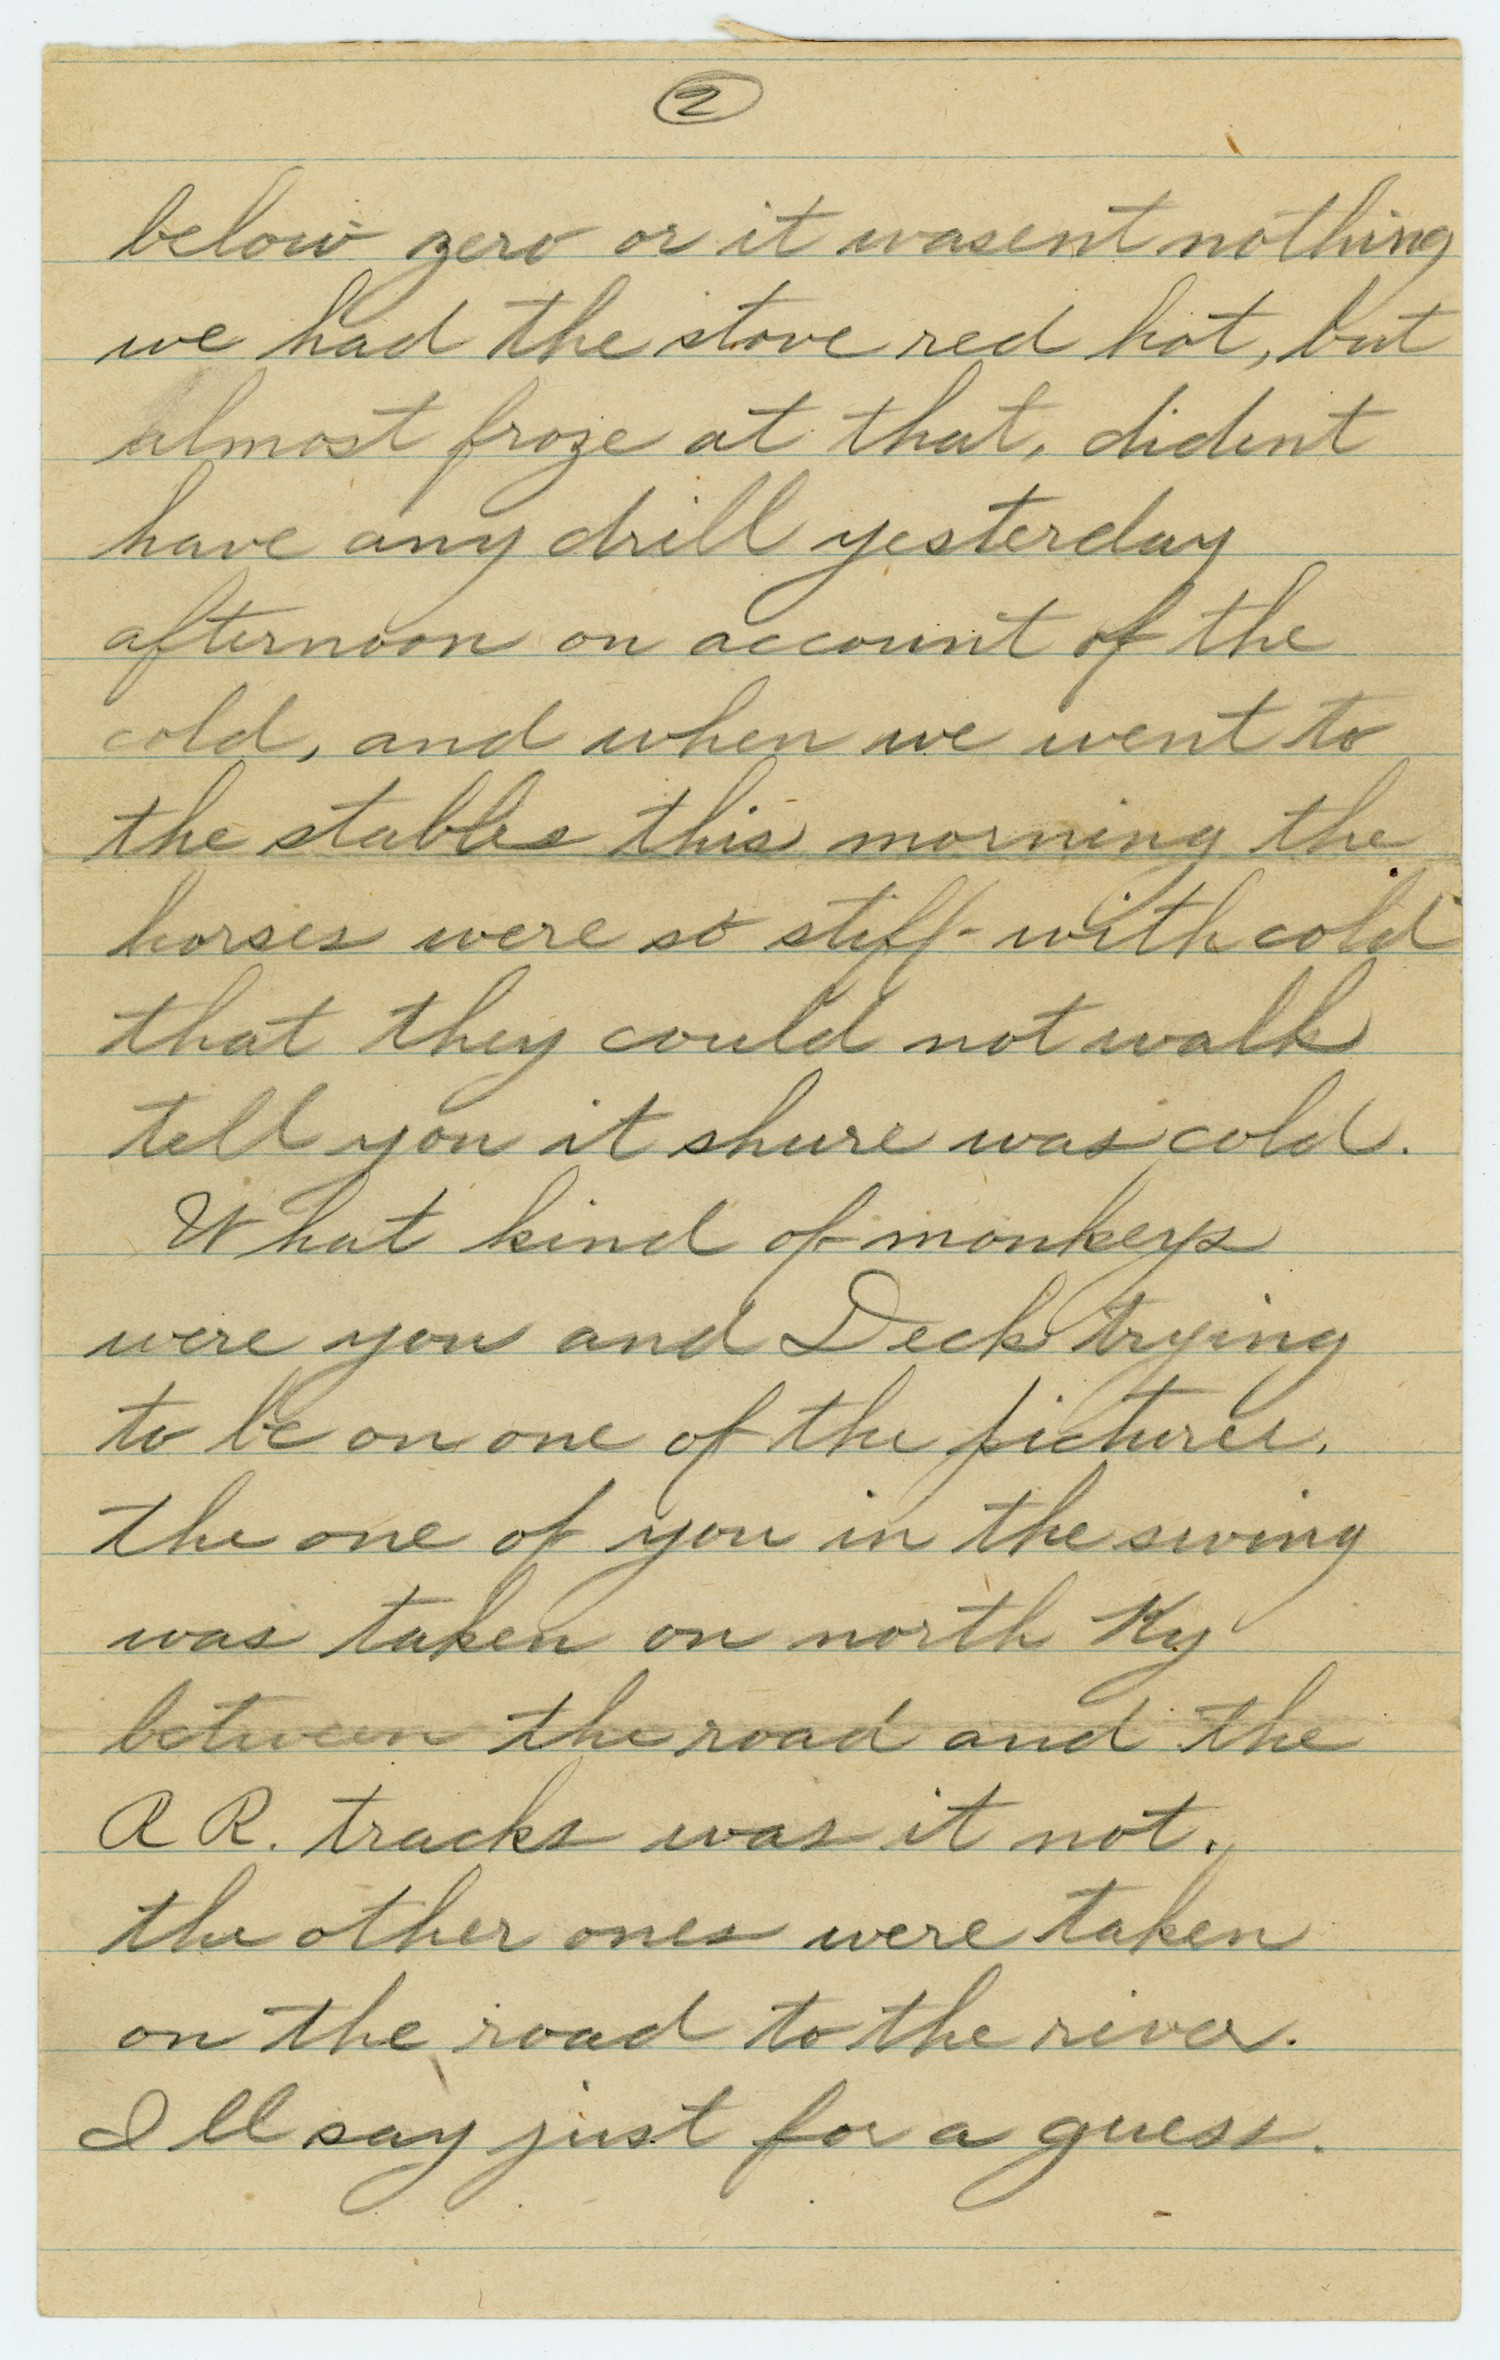 2
below zero or it wasent nothing
we had the stove red hot, but
almost froze at that, dident
have any drill yesterday
afternoon on account of the
cold, and when we went to
the stables this morning the
horses were so stiff with cold
that they could not walk
tell you it shure was cold.
What kind of monkeys
were you and Deck trying
to be on one of the pictures.
the one of you in the swing
was taken on north Ky
between the road and the
R R. tracks was it not.
the other ones were taken
on the road to the river.
I ll say just for a guess.